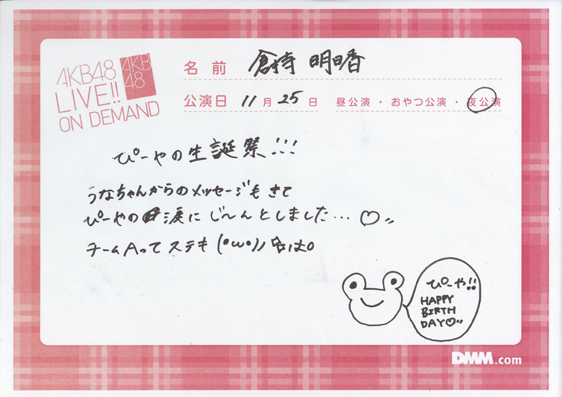 AKB48
LIVE!!
ON DEMAND
AKB
48
名前 倉持 明日香
公演日 11月25日 昼公演・おやつ公演・夜公演
ぴーやの生誕祭!!!
うなちゃんからのメッセージもきて
ぴーやの涙にじ〜んとしました...♡
チームAってステキ(°ω°)ノ
ぴーや!!
HAPPY
BIRTH
DAY♡
DMM.com